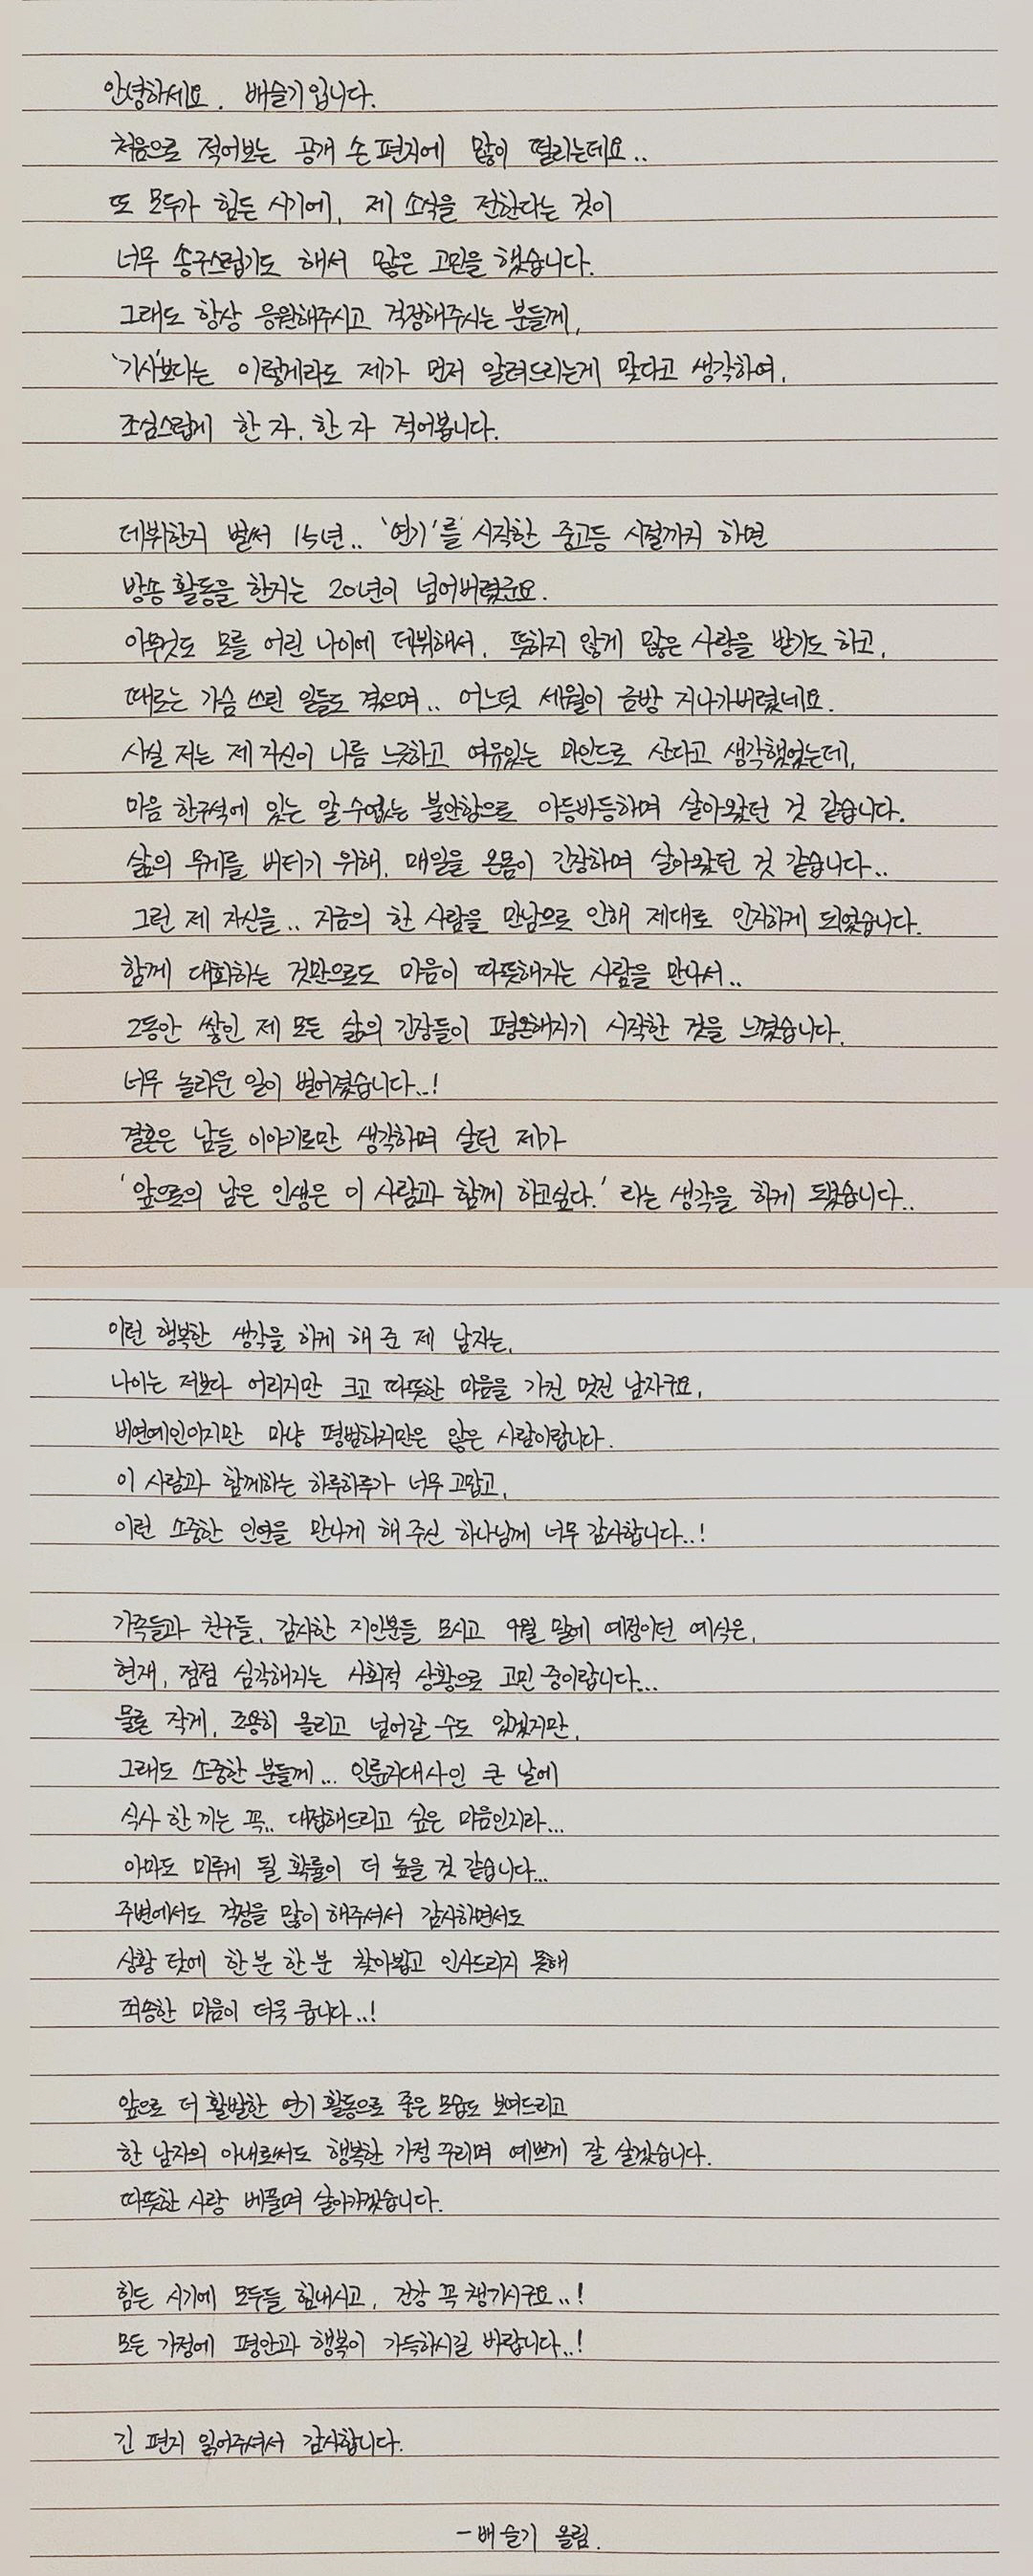 안녕하세요. 배슬기입니다.
처음으로 적어보는 공개 손편지에 많이 떨리는데요..
또 모두가 힘든 시기에, 제 소식을 전한다는 것이
너무 송구스럽기도 해서 많은 고민을 했습니다.
그래도 항상 응원해주시고 걱정해주시는 분들께,
'기사'보다는 이렇게라도 제가 먼저 알려드리는게 맞다고 생각하여,
조심스럽게 한 자, 한 자 적어봅니다.
데뷔한지 벌써 15년.. '연기'를 시작한 중고등 시절까지 하면
방송 활동을 한지는 20년이 넘어버렸군요.
아무것도 모를 어린 나이에 데뷔해서, 뜻하지 않게 많은 사랑을 받기도 하고,
때로는 가슴 쓰린 일들도 겪으며.. 어느덧 세월이 금방 지나가버렸네요.
사실 저는 제 자신이 나름 느긋하고 여유있는 마인드로 산다고 생각했었는데,
마음 한구석에 있는 알 수 없는 불안함으로 아등바등하며 살아왔던 것 같습니다.
삶의 무게를 버티기 위해, 매일을 온몸이 긴장하며 살아왔던 것 같습니다..
그런 제 자신을.. 지금의 한 사람을 만남으로 인해 제대로 인지하게 되었습니다.
함께 대화하는 것만으로도 마음이 따뜻해지는 사람을 만나서..
그동안 쌓인 제 모든 삶의 긴장들이 평온해지기 시작한 것을 느꼈습니다.
너무 놀라운 일이 벌어졌습니다..!
결혼은 남들 이야기로만 생각하며 살던 제가
'앞으로의 남은 인생은 이 사람과 함께 하고싶다.' 라는 생각을 하게 됐습니다..
이런 행복한 생각을 하게 해 준 제 남자는,
나이는 저보다 어리지만 크고 따뜻한 마음을 가진 멋진 남자구요,
비연예인이지만 마냥 평범하지만은 않은 사람이랍니다.
이 사람과 함께하는 하루하루가 너무 고맙고,
이런 소중한 인연을 만나게 해 주신 하나님께 너무 감사합니다..!
가족들과 친구들, 감사한 지인분들 모시고 9월 말에 예정이던 예식은,
현재, 점점 심각해지는 사회적 상황으로 고민 중이랍니다...
물론 작게, 조용히 올리고 넘어갈 수도 있겠지만,
그래도 소중한 분들께... 인륜지대사인 큰 날에
식사 한 끼는 꼭.. 대접해드리고 싶은 마음인지라...
아마도 미루게 될 확률이 더 높을 것 같습니다...
주변에서도 걱정을 많이 해주셔서 감사하면서도
상황 탓에 한분 한분 찾아뵙고 인사드리지 못해
죄송한 마음이 더욱 큽니다..!
앞으로 더 활발한 연기 활동으로 좋은 모습도 보여드리고
한 남자의 아내로써도 행복한 가정 꾸리며 예쁘게 잘 살겠습니다.
따뜻한 사랑 베풀며 살아가겠습니다.
힘든 시기에 모두들 힘내시고, 건강 꼭 챙기시구요..!
모든 가정에 평안과 행복이 가득하시길 바랍니다..!
긴 편지 읽어주셔서 감사합니다.
- 배슬기 올림.